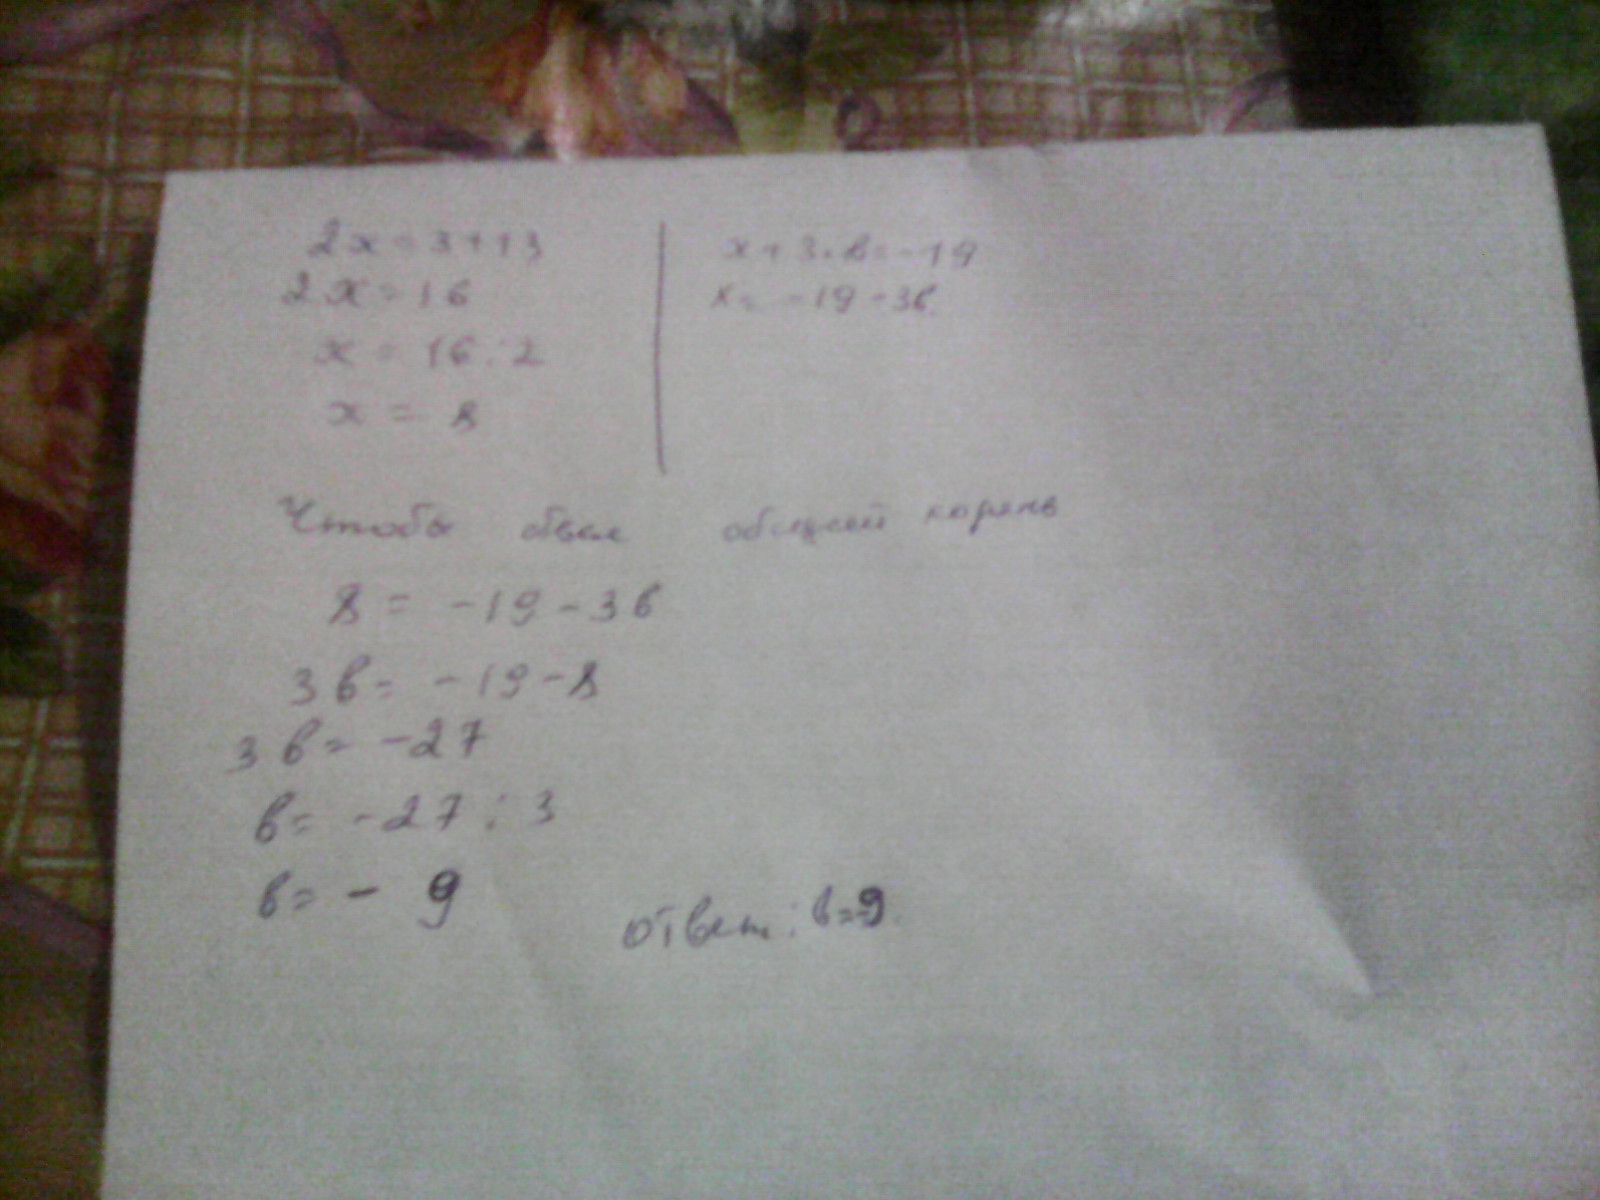 2x=3+13
2x=16
x = 16:2
x = 8
x+3·в=-19
x= -19-3в
Чтобы был общий корень
8 = -19-3в
3в= -19-8
3в= -27
в= -27:3
в= - 9
ответ: в=-9.